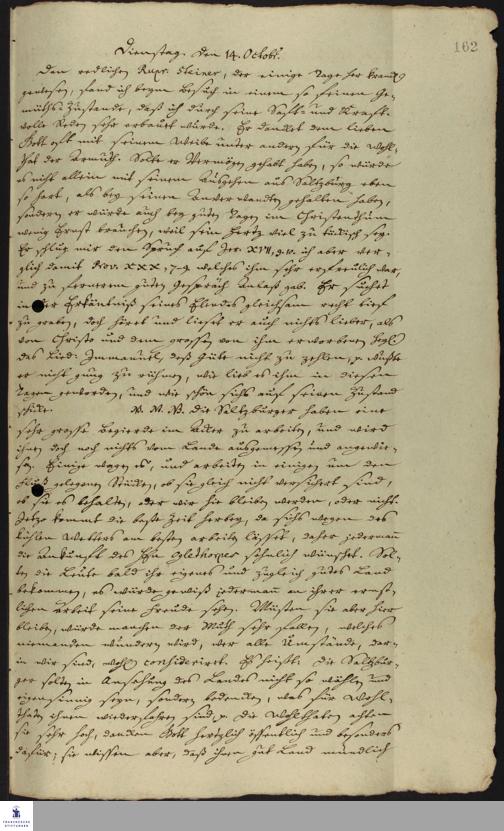 162
Dienstag. den 14. Octobr.
Den redlichen Rupr. Steiner, der einige Tage her kranck
gewesen, fand ich beym Besuch in einem so feinen Ge-
müths-Zustande, daß ich durch seine Safft- und Kraft-
volle Reden sehr erbauet wurde. Er dancket dem lieben
Gott oft mit seinem Weibe unter andern für die Wohl-
that der Armuth. Solte er Vermögen gehabt haben, so würde
es nicht allein mit seinem Ausgehen aus Saltzburg eben
so hart, als bey seinen Anverwandten gehalten haben,
sondern er würde auch bey guten Tagen im Christenthum
wenig Ernst brauchen, weil sein Hertz viel zu tückisch sey.
Er schlug mir den Spruch auf Jer. XVII, 9. 10. ich aber ver-
glich damit Prov. XXX, 7-9 welches ihm sehr erfreulich war,
und zu fernerem guten Gespräch Anlaß gab. Er suchet
in der Erkäntniß seines Elendes gleichsam recht tief
zu graben, doch höret und lieset er auch nichts lieber, als
von Christo und dem grossen von ihm erworbenen Heyl
das Lied: Immanuel, deß Güte nicht zu zehlen, p. wußte
er nicht gnug zu rühmen, wie lieb es ihm in diesen
Tagen geworden, und wie schön sichs auf seinen Zustand
schicke. N. N. N. Die Saltzburger haben eine
sehr grosse Begierde im Acker zu arbeiten, und wird
ihnen doch noch nichts vom Lande ausgemessen und angewie-
sen. Einige wagen es, und arbeiten in einigen um den
Fluß gelegenen Stücken, ob sie gleich nicht versichert sind,
ob sie es behalten, oder wir hie bleiben werden, oder nicht.
Jetzo kommt die beste Zeit herbey, da sichs wegen des
kühlen Wetters am besten arbeiten lässet, daher jedermann
die Ankunft des Hn Oglethorpes sehnlich wünschet. Sol-
ten die Leute bald ihr eigenes und zugleich gutes Land
bekommen, es würde gewiß jedermann an ihrer ernst-
lichen Arbeit seine Freude sehen. Müsten sie aber hier
bleiben, würde manchen der Muth sehr fallen, welches
niemanden wundern wird, der alle Umstände, dar-
in wir sind, wohl consideriret. Es heisst: Die Saltzbur-
ger solten in Ansehung des Landes nicht so wählen und
eigensinnig seyn, sondern bedencken, was für Wohl-
thaten ihnen wiederfahren sind p. Die Wohlthaten achten
sie sehr hoch, dancken Gott hertzlich öffentlich und besonders
dafür; sie wissen aber, daß ihnen gut Land mündlich
FRANCKESCHE
STIFTUNGEN